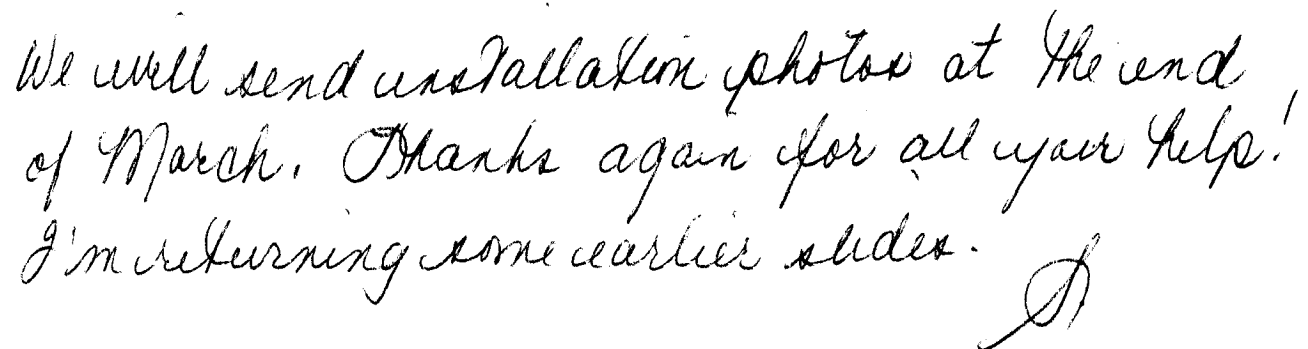 We will send installation photos at the end
of March. Thanks again for all your help!
I'm returning some earlier slides.